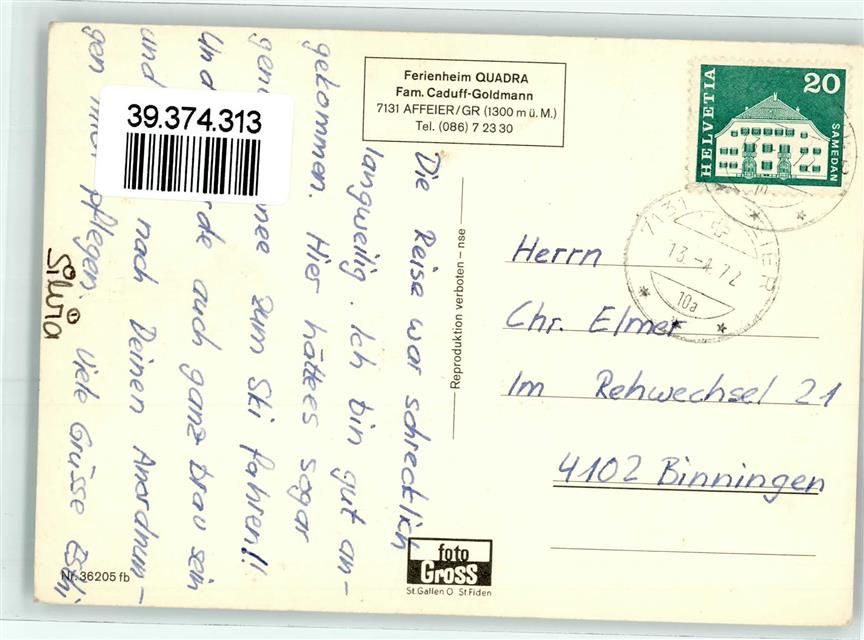 Ferienheim QUADRA
Fam. Caduff-Goldmann
7131 AFFEIER/GR (1300 m ü. M.)
Tel. (086) 7 23 30
HELVETIA
20
SAMEDAN
7131
EIER
13.-4.72
10a
39.374.313
Die Reise war schrecklich
langweilig. Ich bin gut an-
gekommen. Hier hättees sogar
genu nee zum Ski fahren!!
Und rde auch ganz brav sein
und nach Deinen Anordnun-
gen pflegen. Viele Grüsse
Silvia
Reproduktion verboten – nse
Herrn
Chr. Elmer
Im Rehwechsel 21
4102 Binningen
foto
Gross
St.Gallen O St.Fiden
Nr. 36205 fb